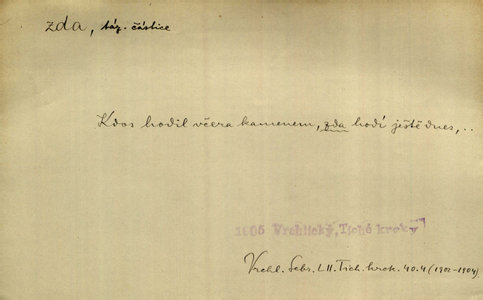 zda, táz. částice
Kdos hodil včera kamenem, zda hodí ještě dnes,..
1905 Vrchlický, Tiché kroky
Vrchl. Sebr. LII. Tich. krok. 40.4 (1902-1904)